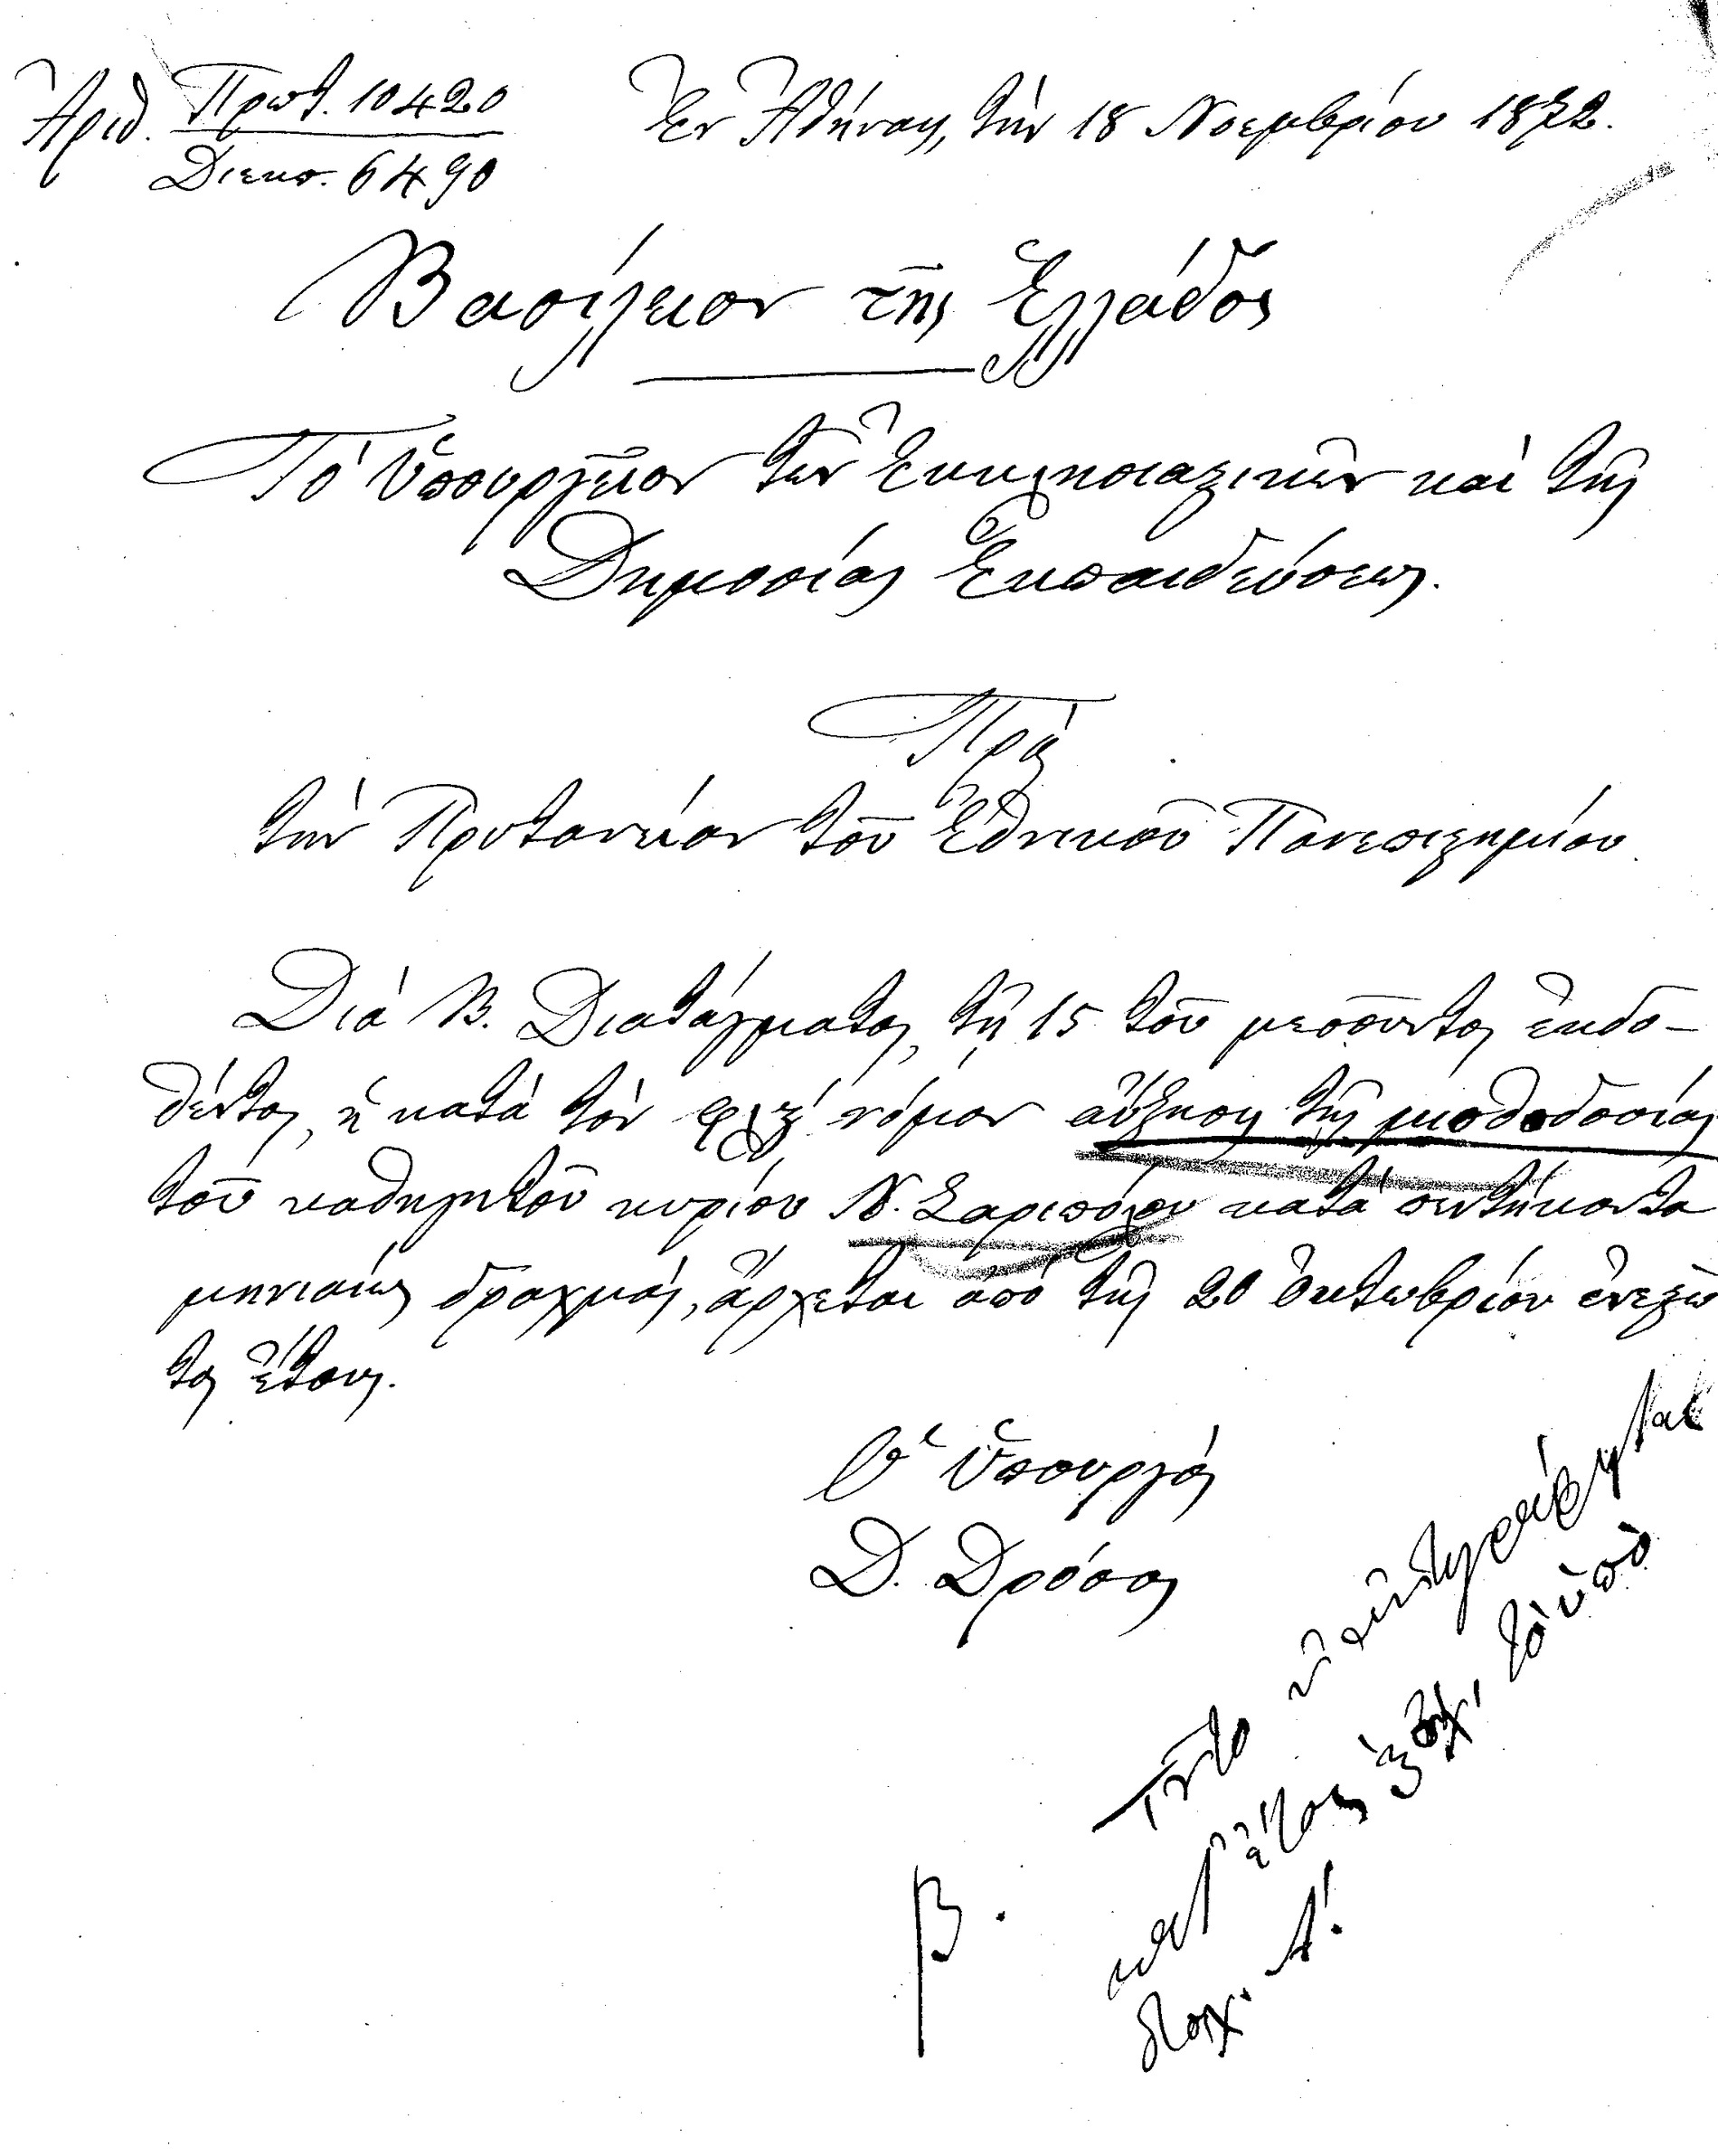 Ἀριθ. Πρωτ. 10420
Διεκπ. 6490
Ἐν Ἀθήναις, τὴν 18 Νοεμβρίου 1872.
Βασίλειον τῆς Ἑλλάδος
Τὸ Ὑπουργεῖον τῶν Ἐκκλησιαστικῶν καὶ τῆς
Δημοσίας Ἐκπαιδεύσεως.
Πρὸς
τὴν Πρυτανείαν τοῦ Ἐθνικοῦ Πανεπιστημίου
Διὰ Β. Διατάγματος, τῇ 15 τοῦ μεσοῦντος ἐκδο-
θέντος, ἡ κατὰ τὸν φλξ´ νόμον αὔξησις τῆς μισθοδοσίας
τοῦ καθηγητοῦ κυρίου Ν. Σαριπόλου κατὰ πεντήκοντα
μηνιαίως δραχμάς, ἄρχεται ἀπὸ τῆς 20 Ὀκτωβρίου ἐνεστῶ
τος ἔτους.
Ὁ Ὑπουργὸς
Δ. Δρόσος
Τοῦτο
ὑπὸ
ἔτος
στοιχ. Α!
β.